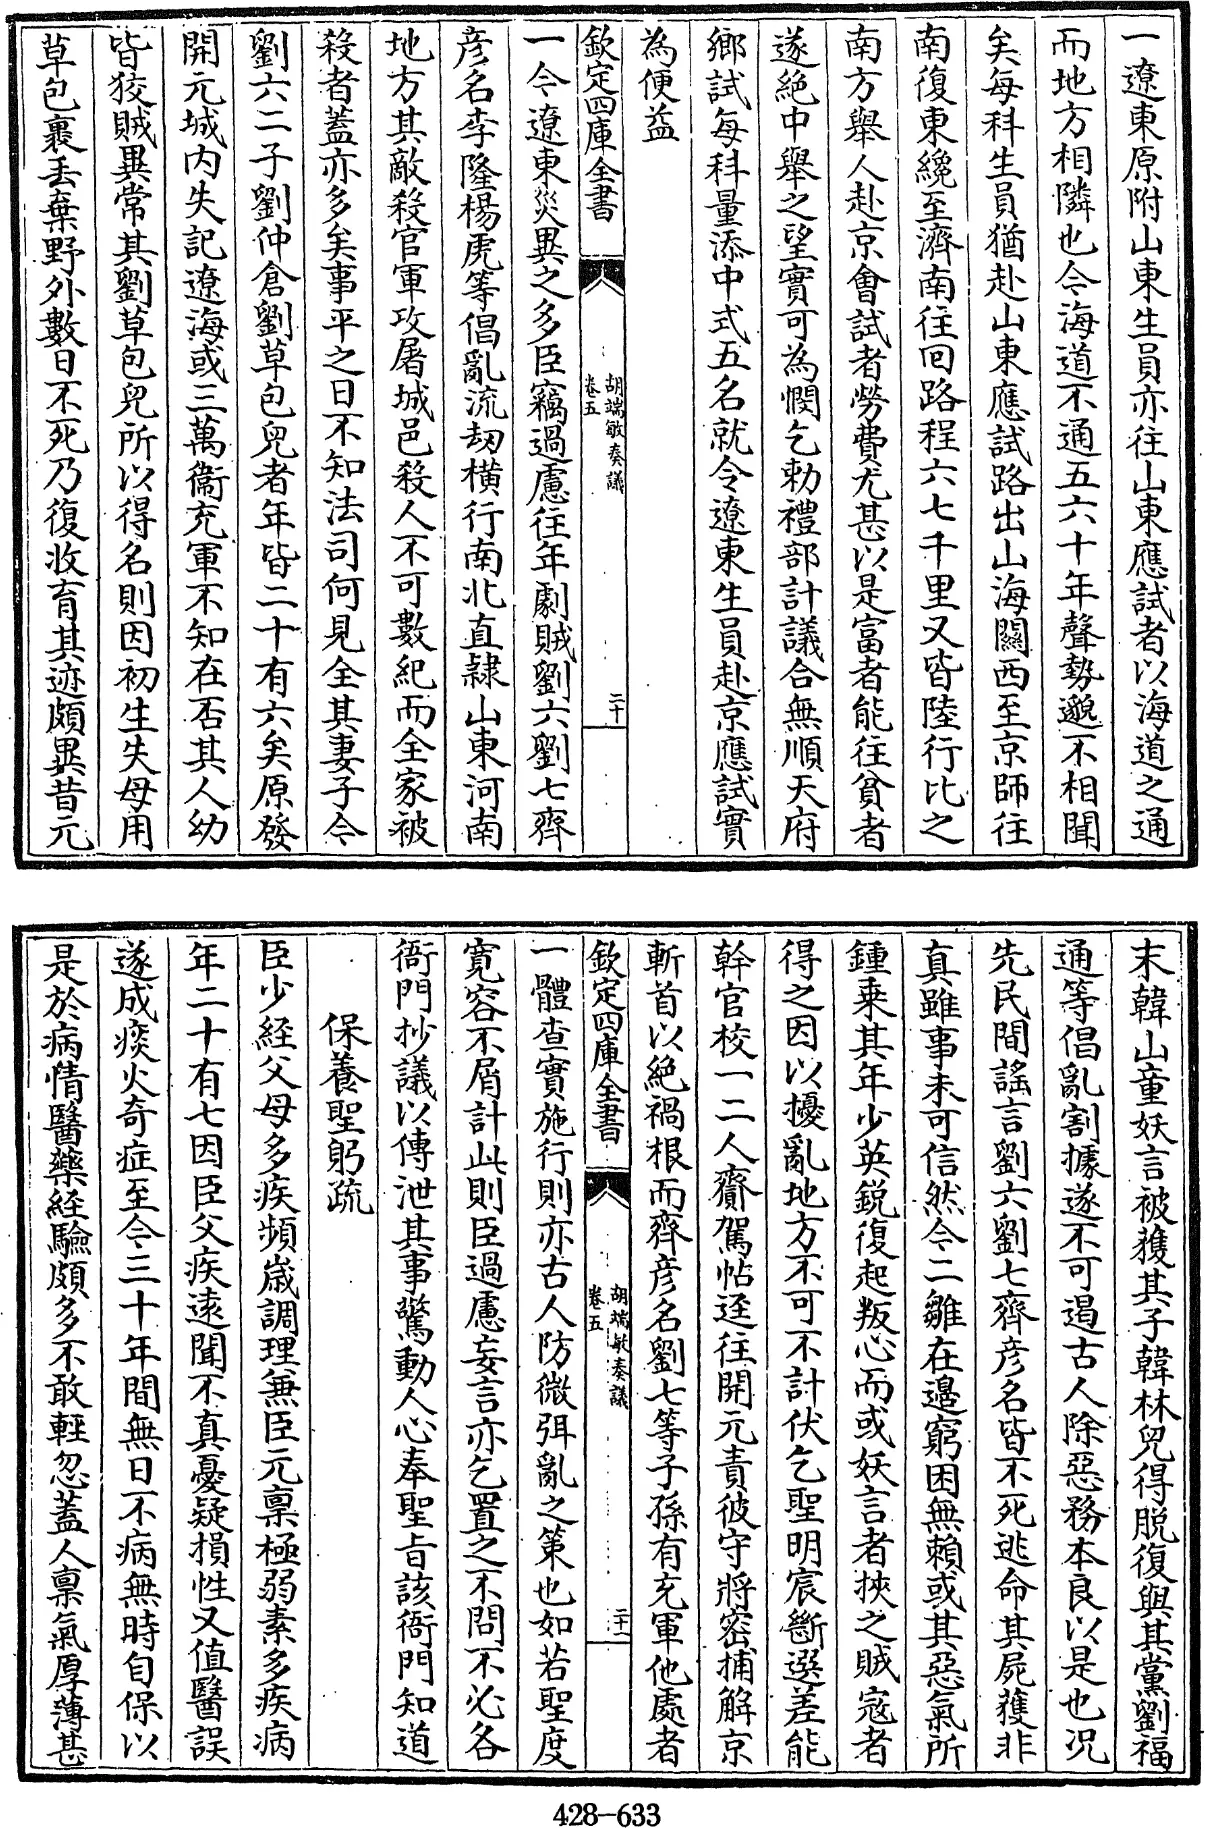 一遼東原附山東生員亦往山東應試者以海道之通
而地方相隣也今海道不通五六十年聲勢邈不相聞
矣每科生員猶赴山東應試路出山海關西至京師往
南復東纔至濟南往回路程六七千里又皆陸行比之
南方舉人赴京會試者勞費尤甚以是富者能往貧者
遂絶中舉之望實可為憫乞勅禮部計議合無順天府
鄉試每科量添中式五名就令遼東生員赴京應試實
為便益
欽定四庫全書
胡端敏奏議
卷五
二十
一今遼東災異之多臣竊過慮往年劇賊劉六劉七齊
彦名李隆楊虎等倡亂流刼横行南北直隸山東河南
地方其敵殺官軍攻屠城邑殺人不可數紀而全家被
殺者蓋亦多矣事平之日不知法司何見全其妻子今
劉六二子劉仲倉劉草包兒者年皆二十有六矣原發
開元城内失記遼海或三萬衞充軍不知在否其人幼
皆狡賊異常其劉草包兒所以得名則因初生失母用
草包裹丢棄野外數日不死乃復收育其迹頗異昔元
末韓山童妖言被獲其子韓林兒得脱復與其黨劉福
通等倡亂割據遂不可遏古人除惡務本良以是也况
先民間謡言劉六劉七齊彦名皆不死逃命其屍獲非
真雖事未可信然今二雛在邉窮困無賴或其惡氣所
鍾乗其年少英鋭復起叛心而或妖言者挾之賊宼者
得之因以擾亂地方不可不計伏乞聖明宸斷選差能
幹官校一二人齎駕帖逕往開元責彼守將密捕解京
斬首以絶禍根而齊彦名劉七等子孫有充軍他處者
欽定四庫全書
胡端敏奏議
卷五
二十一
一體查實施行則亦古人防微弭亂之策也如若聖度
寛容不屑計此則臣過慮妄言亦乞置之不問不必各
衙門抄議以傳泄其事驚動人心奉聖旨該衙門知道
保養聖躬疏
臣少經父母多疾頻嵗調理兼臣元禀極弱素多疾病
年二十有七因臣父疾逺聞不真憂疑損性又值醫誤
遂成痰火奇症至今三十年間無日不病無時自保以
是於病情醫藥經驗頗多不敢輕忽蓋人禀氣厚薄甚
428-633